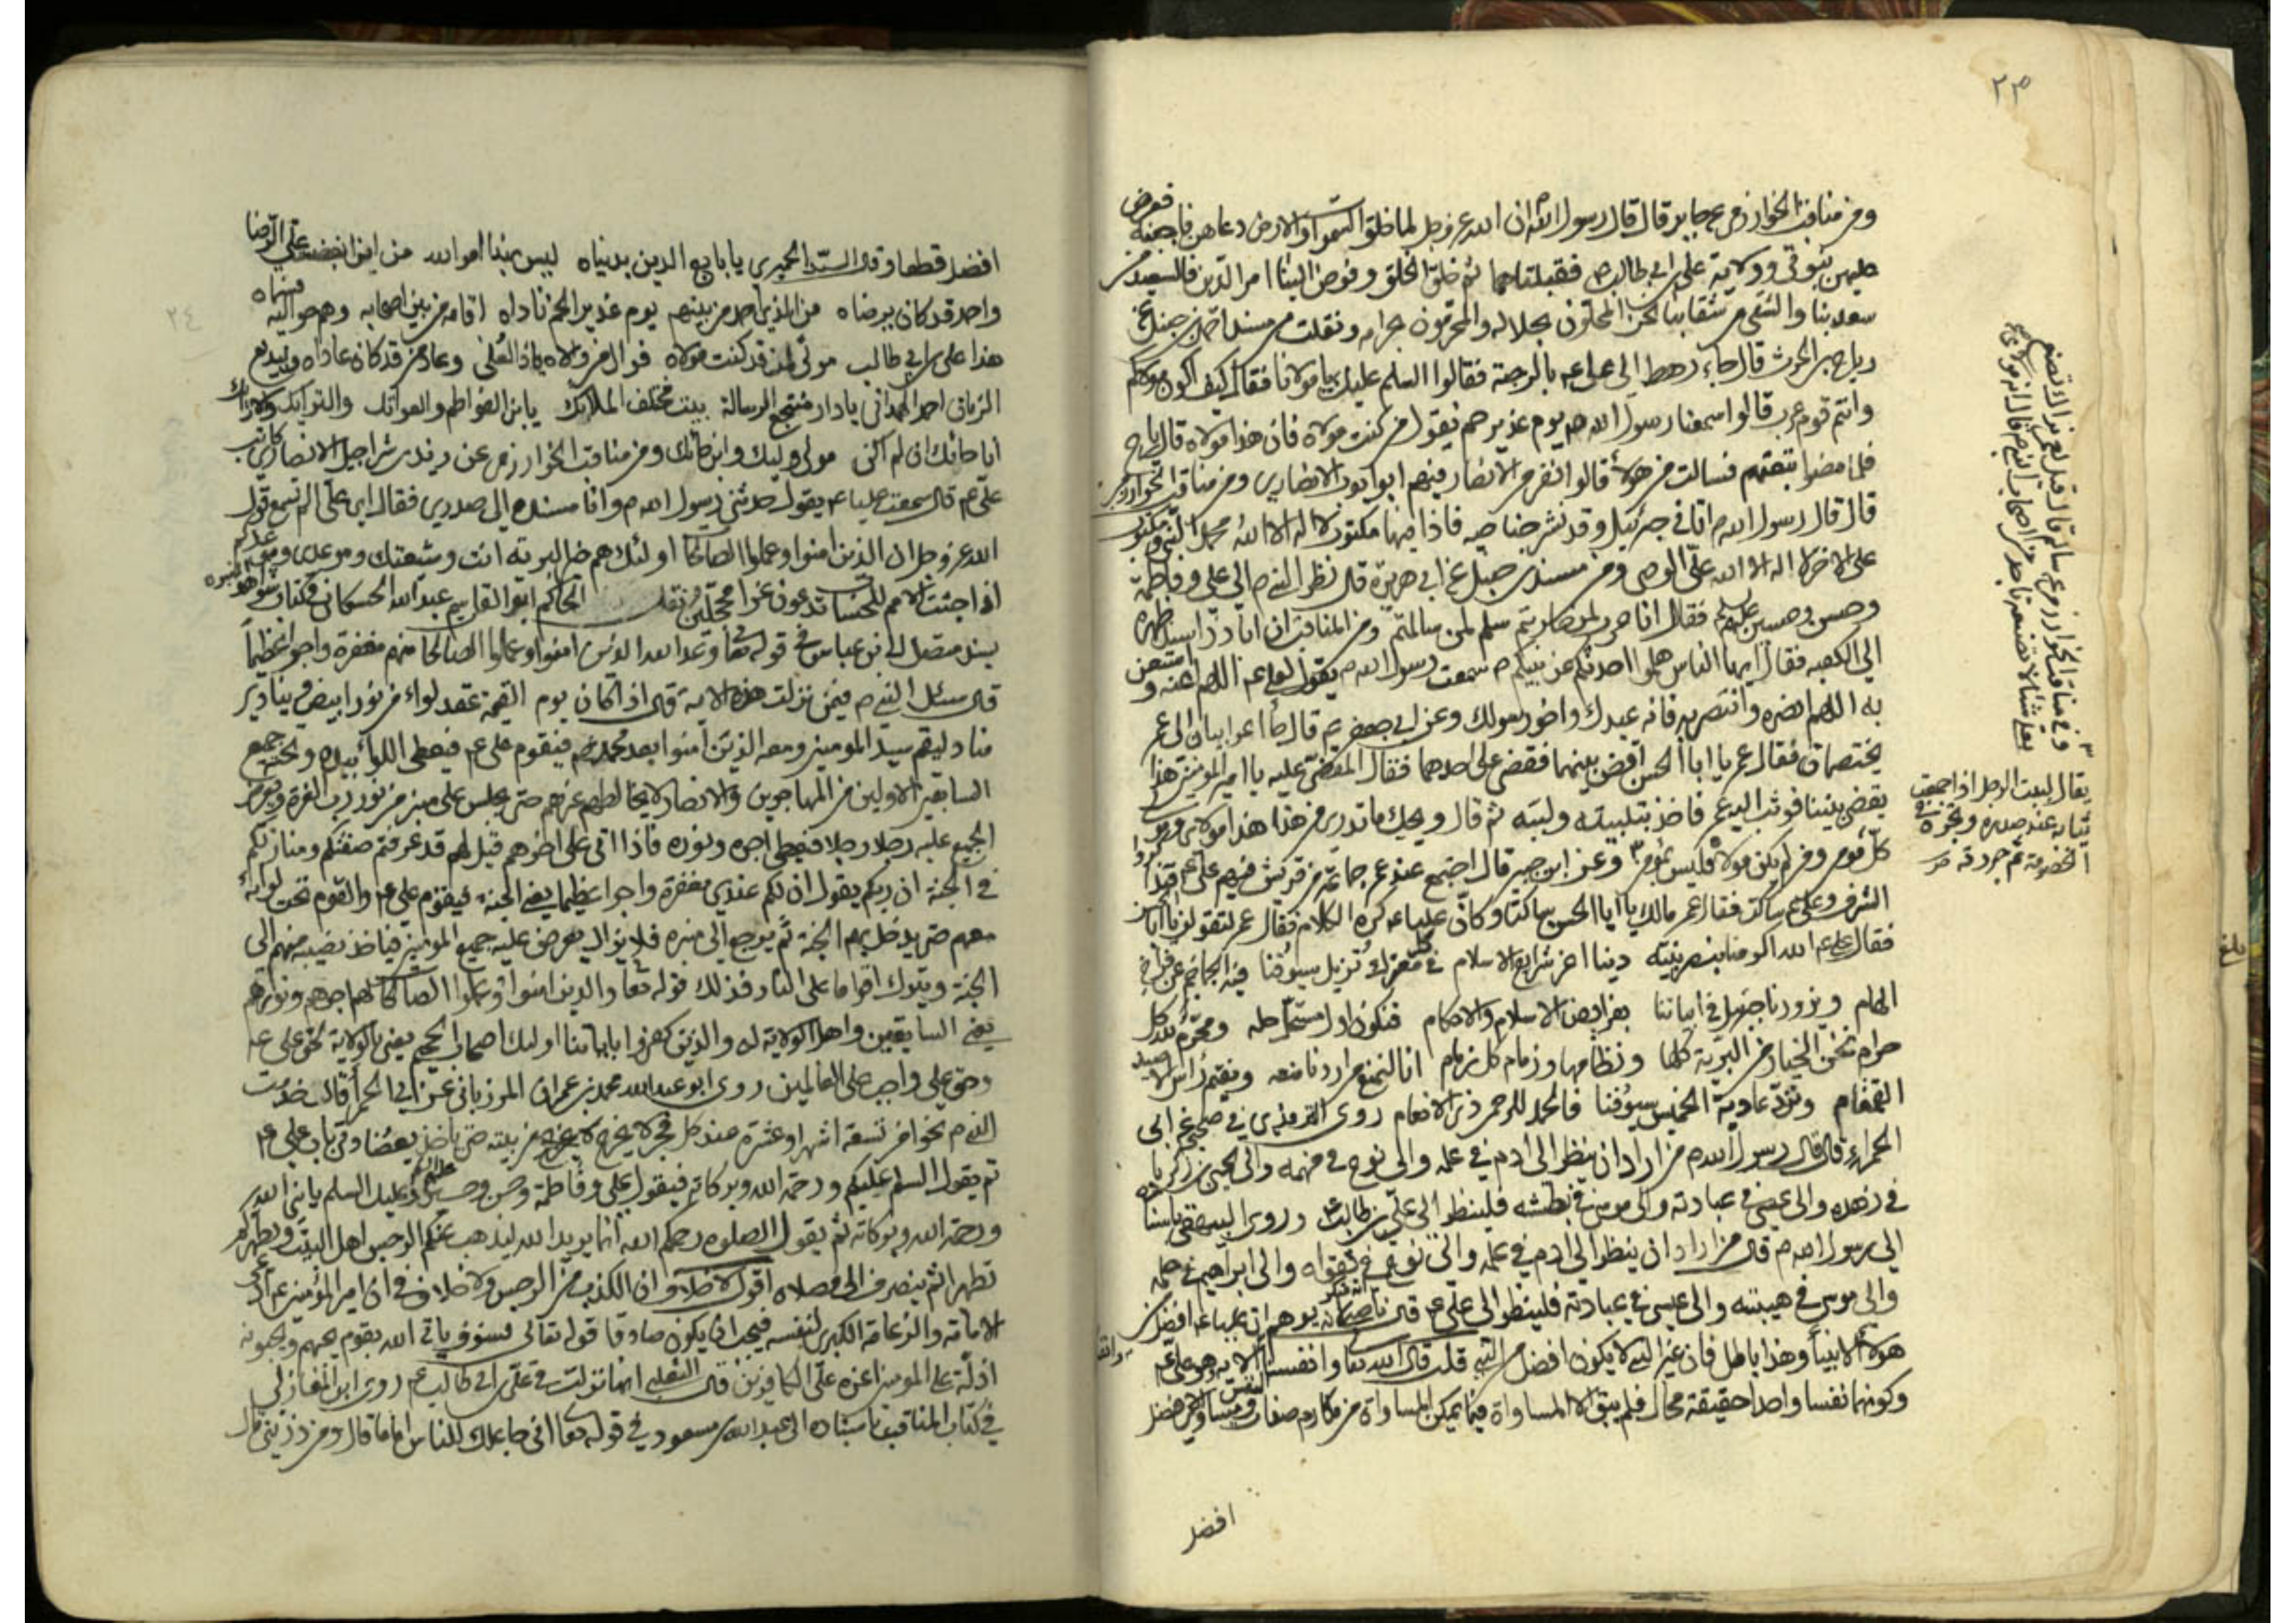 ٢٣
ومن مناقب الخوارزمي عن جابر قال قال رسول الله ص ان الله عز وجل لما خلق السموات والارض دعاهن فاجبنه فعرض
عليهن نبوتي وولاية علي بن ابي طالب فقبلتاهما ثم خلق الخلق وفوض الينا امر الدين فالسعيد من
سعد بنا والشقي من شقي بنا نحن المحلون لحلاله والمحرمون لحرامه ونقلت من مسند احمد بن حنبل عن
رياح بن الحرث قال جاء رهط الى علي عم بالرحبة فقالوا السلم عليك يا مولانا فقال كيف اكون مولاكم
وانتم قوم عرب قالوا سمعنا رسول الله ص يوم غدير خم يقول من كنت مولاه فان هذا مولاه قال رياح
فلما مضوا تبعتهم فسالت من هولاء قالوا نفر من الانصار فيهم ابو ايوب الانصاري ومن مناقب الخوارزمي
قال قال رسول الله ص اتاني جبرئيل وقد نشر جناحيه فاذا فيها مكتوب لا اله الا الله محمد النبي ومكتوب
على الاخر لا اله الا الله علي الوصي ومن مسند بن حنبل عن ابي هريرة قال نظر النبي ص الى علي وفاطمة
وحسن وحسين عليهم فقال انا حرب لمن حاربتم سلم لمن سالمتم ومن المناقب ان ابا ذر اسند ظهره
الى الكعبه فقال ايها الناس هلموا احدثكم عن نبيكم ص سمعت رسول الله ص يقول لعلي عم اللهم اعنه واستعن
به اللهم انصره وانتصر به فانه عبدك واخو رسولك وعن ابي جعفر عم قال جاء اعرابيان الى عمر
يختصمان فقال عمر يا ابا الحسن اقض بينهما فقضى على احدهما فقال المقضي عليه يا امير المومنين هذا
يقضي بيننا فوثب اليه عمر فاخذ بتلبيبه ولببه ثم قال ويحك ما تدري من هذا هذا مولاي ومولى
كل مومن ومن لم يكن مولاه فليس بمومن وعن ابن جبير قال اجتمع عند عمر جماعة من قريش فيهم علي عم فتذاكروا
الشرف وعلي عم ساكت فقال عمر مالك يا ابا الحسن ساكتا وكان عليا عم كره الكلام فقال عمر لتقولن يا ابا الحسن
فقال علي عم الله اكرمنا بنصر نبيه وبنا اعز شرايع الاسلام في كل معترك تزيل سيوفنا فيه الجماجم عن فراخ
الهام ويزورنا جبريل في ابياتنا بفرايض الاسلام والاحكام فنكون اول مستحل حله ومحرم لله كل
حرام نحن الخيار من البرية كلها ونظامها وزمام كل زمام انا لنمنع من اردنا منعه ونقيم راس الاصيد
القمقام وترد عادية الخميس سيوفنا فالحمد للرحمن ذي الانعام روى الترمذي في صحيحه عن ابي
الحمراء قال قال رسول الله ص من اراد ان ينظر الى ادم في علمه والى نوح في فهمه والى يحيى بن زكريا
في زهده والى عيسى في عبادته والى موسى في بطشه فلينظر الى علي بن ابي طالب وروى البيهقي باسناده
الى رسول الله ص قال من اراد ان ينظر الى ادم في علمه والى نوح في تقواه والى ابراهيم في حلمه
والى موسى في هيبته والى عيسى في عبادته فلينظر الى علي عم قال يوهم ان عليا عم افضل من
هولاء الانبياء وهذا باطل فان غير النبي لا يكون افضل من النبي قلت قال الله تعا وانفسنا الاية وهو علي عم
وكونهما نفسا واحدا حقيقة محال فلم يبق الا المساواة فيما يمكن المساواة من مكارم صفات النفس ومساوي الافضل
افضل
وفي مناقب الخوارزمي عن سالم قال قيل لعمر نراك تصنع
بعلي شيئا لا تصنعه باحد من اصحاب النبي ص قال انه مولاي
يقال لببت الرجل اذا جمعت
ثيابه عند صدره ونحره في
الخصومة ثم جررته
بلغ
٢٤
افضل قطعا وقال السيد الحميري يا بايع الدين بدنياه ليس بهذا امر الله من اين ابغضت علي الرضا
واحمد قد كان يرضاه من الذي احمد من بينهم يوم غدير الخم ناداه اقامه من بين اصحابه وهم حواليه فسماه
هذا علي بن ابي طالب مولى لمن قد كنت مولاه فوال من والاه يا ذا العلى وعاد من قد كان عاداه ولبديع
الزماني احمد الهمداني يا دار منتجع الرسالة بيت مختلف الملائك يا ابن الفواطم والعواتك والترايك والارائك
انا حائك ان لم اكن مولى وليك وابن حائك ومن مناقب الخوارزمي عن يزيد بن شراحيل الانصاري كاتب
علي عم قال سمعت عليا عم يقول حدثني رسول الله ص وانا مسنده الى صدري فقال اي علي الم تسمع قول
الله عز وجل ان الذين امنوا وعملوا الصالحات اولئك هم خير البرية انت وشيعتك وموعدي وموعدكم الحوض
اذا جئت الامم للحساب تدعون غرا محجلين ونقل الحاكم ابو القاسم عبيد الله الحسكاني في كتاب شواهد
بسند متصل الى بن عباس في قوله تعا وعد الله الذين امنوا وعملوا الصالحات منهم مغفرة واجرا عظيما
قال سئل النبي ص فيمن نزلت هذه الاية قال اذا كان يوم القيمة عقد لواء من نور ابيض وينادي
مناد ليقم سيد المومنين ومعه الذين امنوا بعد محمد ص فيقوم علي عم فيعطى اللواء بيده وتحته جميع
السابقين الاولين من المهاجرين والانصار لا يخالطهم غيرهم حتى يجلس على منبر من نور رب العزة ويعرض
الجميع عليه رجلا رجلا فيعطى اجره ونوره فاذا اتى على اخرهم قيل لهم قد عرفتم صفتكم ومنازلكم
في الجنة ان ربكم يقول ان لكم عندي مغفرة واجرا عظيما يعني الجنة فيقوم علي عم والقوم تحت لوائه
معهم حتى يدخل بهم الجنة ثم يرجع الى منبره فلا يزال يعرض عليه جميع المومنين فياخذ نصيبه منهم الى
الجنة ويترك اقواما على النار فذلك قوله تعا والذين امنوا وعملوا الصالحات لهم اجرهم ونورهم
يعني السابقين واهل الولاية له والذين كفروا بايتنا اولئك اصحاب الجحيم يعني بالولاية بحق علي عم
وحق علي واجب على العالمين روى ابو عبد الله محمد بن عمران المرزباني عن ابي الحمراء قال خدمت
النبي ص نحوا من تسعة اشهر او عشرة عند كل فجر لا يخرج من بيته حتى ياخذ بعضادتي باب علي عم
ثم يقول السلم عليكم ورحمة الله وبركاته فيقول علي وفاطمة وحسن وحسين وعليك السلم يا نبي الله
ورحمة الله وبركاته ثم يقول الصلوة رحمكم الله انما يريد الله ليذهب عنكم الرجس اهل البيت ويطهركم
تطهيرا ثم ينصرف الى مصلاه اقول لا خلاف ان الكذب من الرجس ولا خلاف في ان امير المؤمنين عم ادعى
الامامة والزعامة الكبرى لنفسه فيجب ان يكون صادقا قوله تعالى فسوف ياتي الله بقوم يحبهم ويحبونه
اذلة على المومنين اعزه على الكافرين قال الثعلبي انما نزلت في علي بن ابي طالب عم روى ابن المغازلي
في كتاب المناقب باسناده الى عبد الله بن مسعود في قوله تعا اني جاعلك للناس اماما قال ومن ذريتي قال